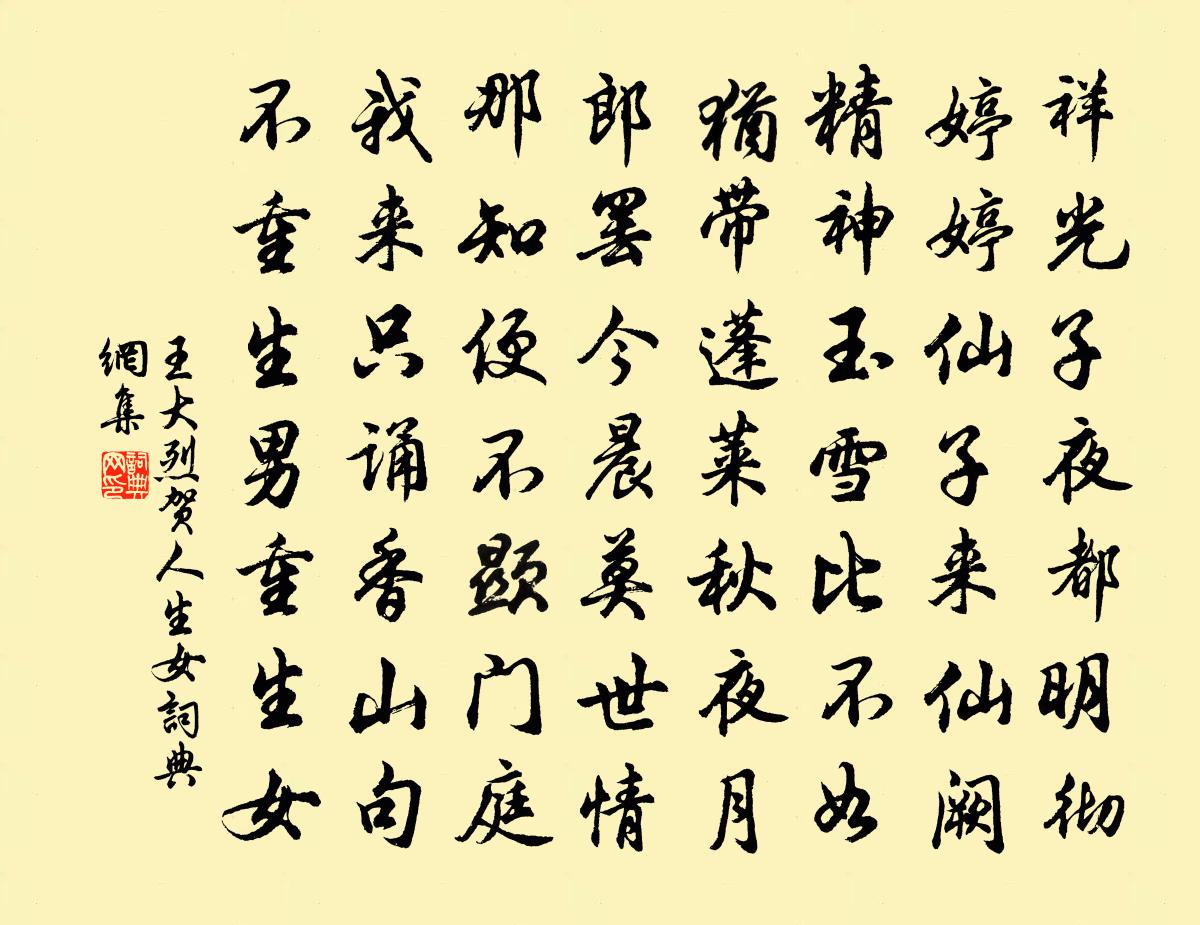 祥光子夜都明彻
婷婷仙子来仙阙
精神玉雪比不如
猶带蓬莱秋夜月
郎罢今晨莫世情
那知便不顕门庭
我来只诵香山句
不重生男重生女
王大烈贺人生女詞典
網集
詞典网印